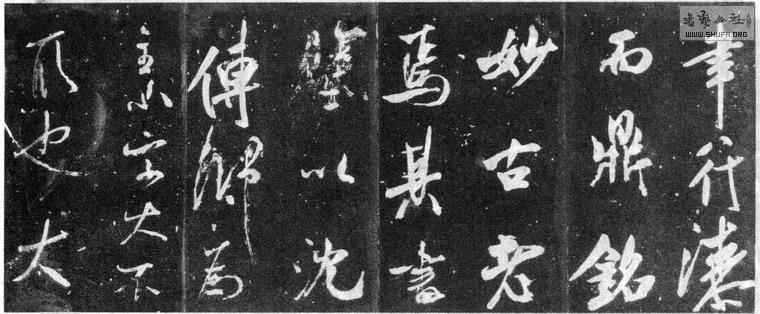 書藝公社
WWW.SHUFA.ORG
聿行漆
而鼎銘
妙古老
焉其書
壁以沈
傳師為
主小字大不
取也太